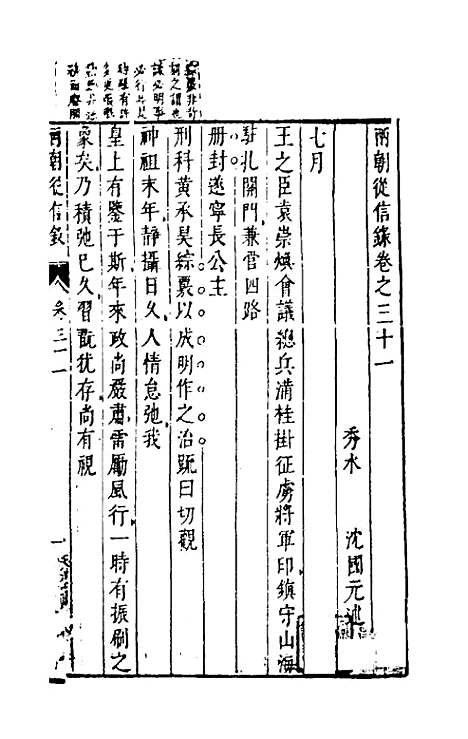 兩朝從信錄卷之三十一
秀水 沈國元述
七月
王之臣袁崇煥會議總兵滿桂掛征虜將軍印鎮守山海
駐扎關門兼管四路
册封遂寧長公主
刑科黃承昊綜覈以成明作之治疏曰切觀
神祖末年靜攝日久人情怠弛我
皇上有鑒于斯年來政尚嚴肅雷勵風行一時有振刷之
象矣乃積弛已久習翫猶存尚有視
兩朝從信錄 卷三十一 一